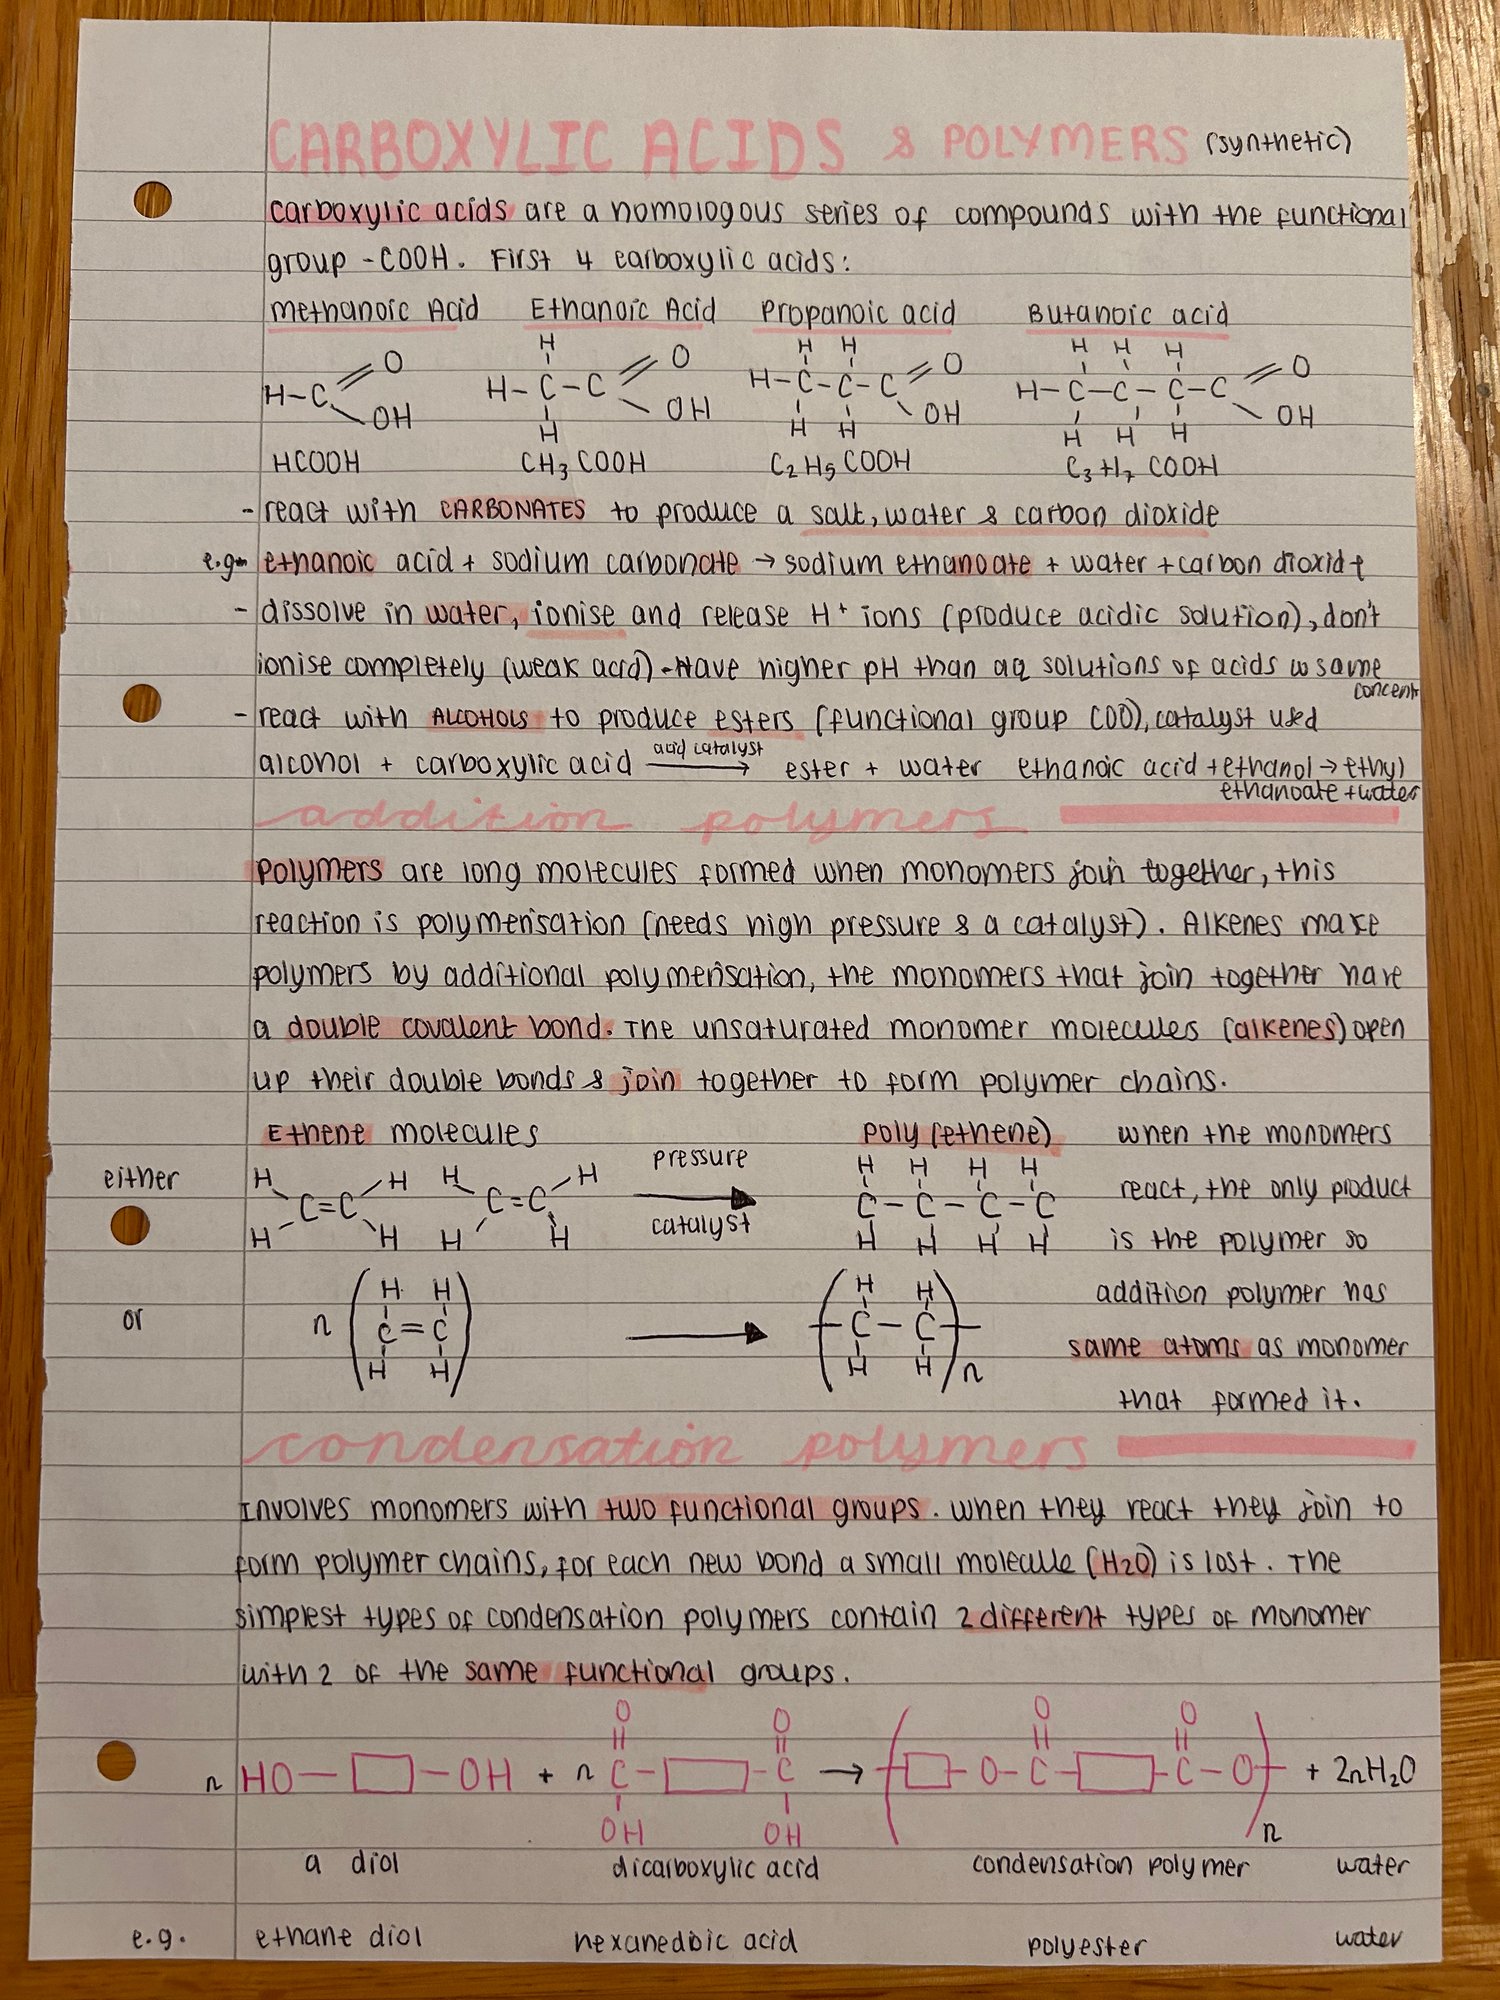 CARBOXYLIC ACIDS & POLYMERS (synthetic)
carboxylic acids are a homologous series of compounds with the functional
group -COOH. First 4 carboxylic acids:
Methanoic Acid Ethanoic Acid Propanoic acid Butanoic acid
H H H H H H
H-C O OH H-C-C O OH H-C-C-C O OH H-C-C-C-C O OH
H H H H H H
HCOOH CH3COOH C2H5COOH C3H7COOH
- react with CARBONATES to produce a salt, water & carbon dioxide
e.g- ethanoic acid + sodium carbonate → sodium ethanoate + water + carbon dioxide
- dissolve in water, ionise and release H+ ions (produce acidic solution), don't
ionise completely (weak acid) - Have higher pH than aq solutions of acids w same
concent
- react with ALCOHOLS to produce esters (functional group COO), catalyst used
alcohol + carboxylic acid acid catalyst → ester + water ethanoic acid + ethanol → ethyl
ethanoate + water
addition polymers
Polymers are long molecules formed when monomers join together, this
reaction is polymerisation (needs high pressure & a catalyst). Alkenes make
polymers by additional polymerisation, the monomers that join together have
a double covalent bond. The unsaturated monomer molecules (alkenes) open
up their double bonds & join together to form polymer chains.
Ethene molecules Poly (ethene) when the monomers
either H H H H pressure H H H H react, the only product
C=C C=C → C-C-C-C
H H H H catalyst H H H H is the polymer so
H H H H addition polymer has
or n C=C → C-C same atoms as monomer
H H H H n
that formed it.
condensation polymers
Involves monomers with two functional groups. When they react they join to
form polymer chains, for each new bond a small molecule (H2O) is lost. The
simplest types of condensation polymers contain 2 different types of monomer
with 2 of the same functional groups.
O O O O
n HO-□-OH + n C-□-C → (□-O-C-□-C-O)n + 2nH2O
OH OH
a diol dicarboxylic acid condensation polymer water
e.g. ethane diol hexanedioic acid polyester water